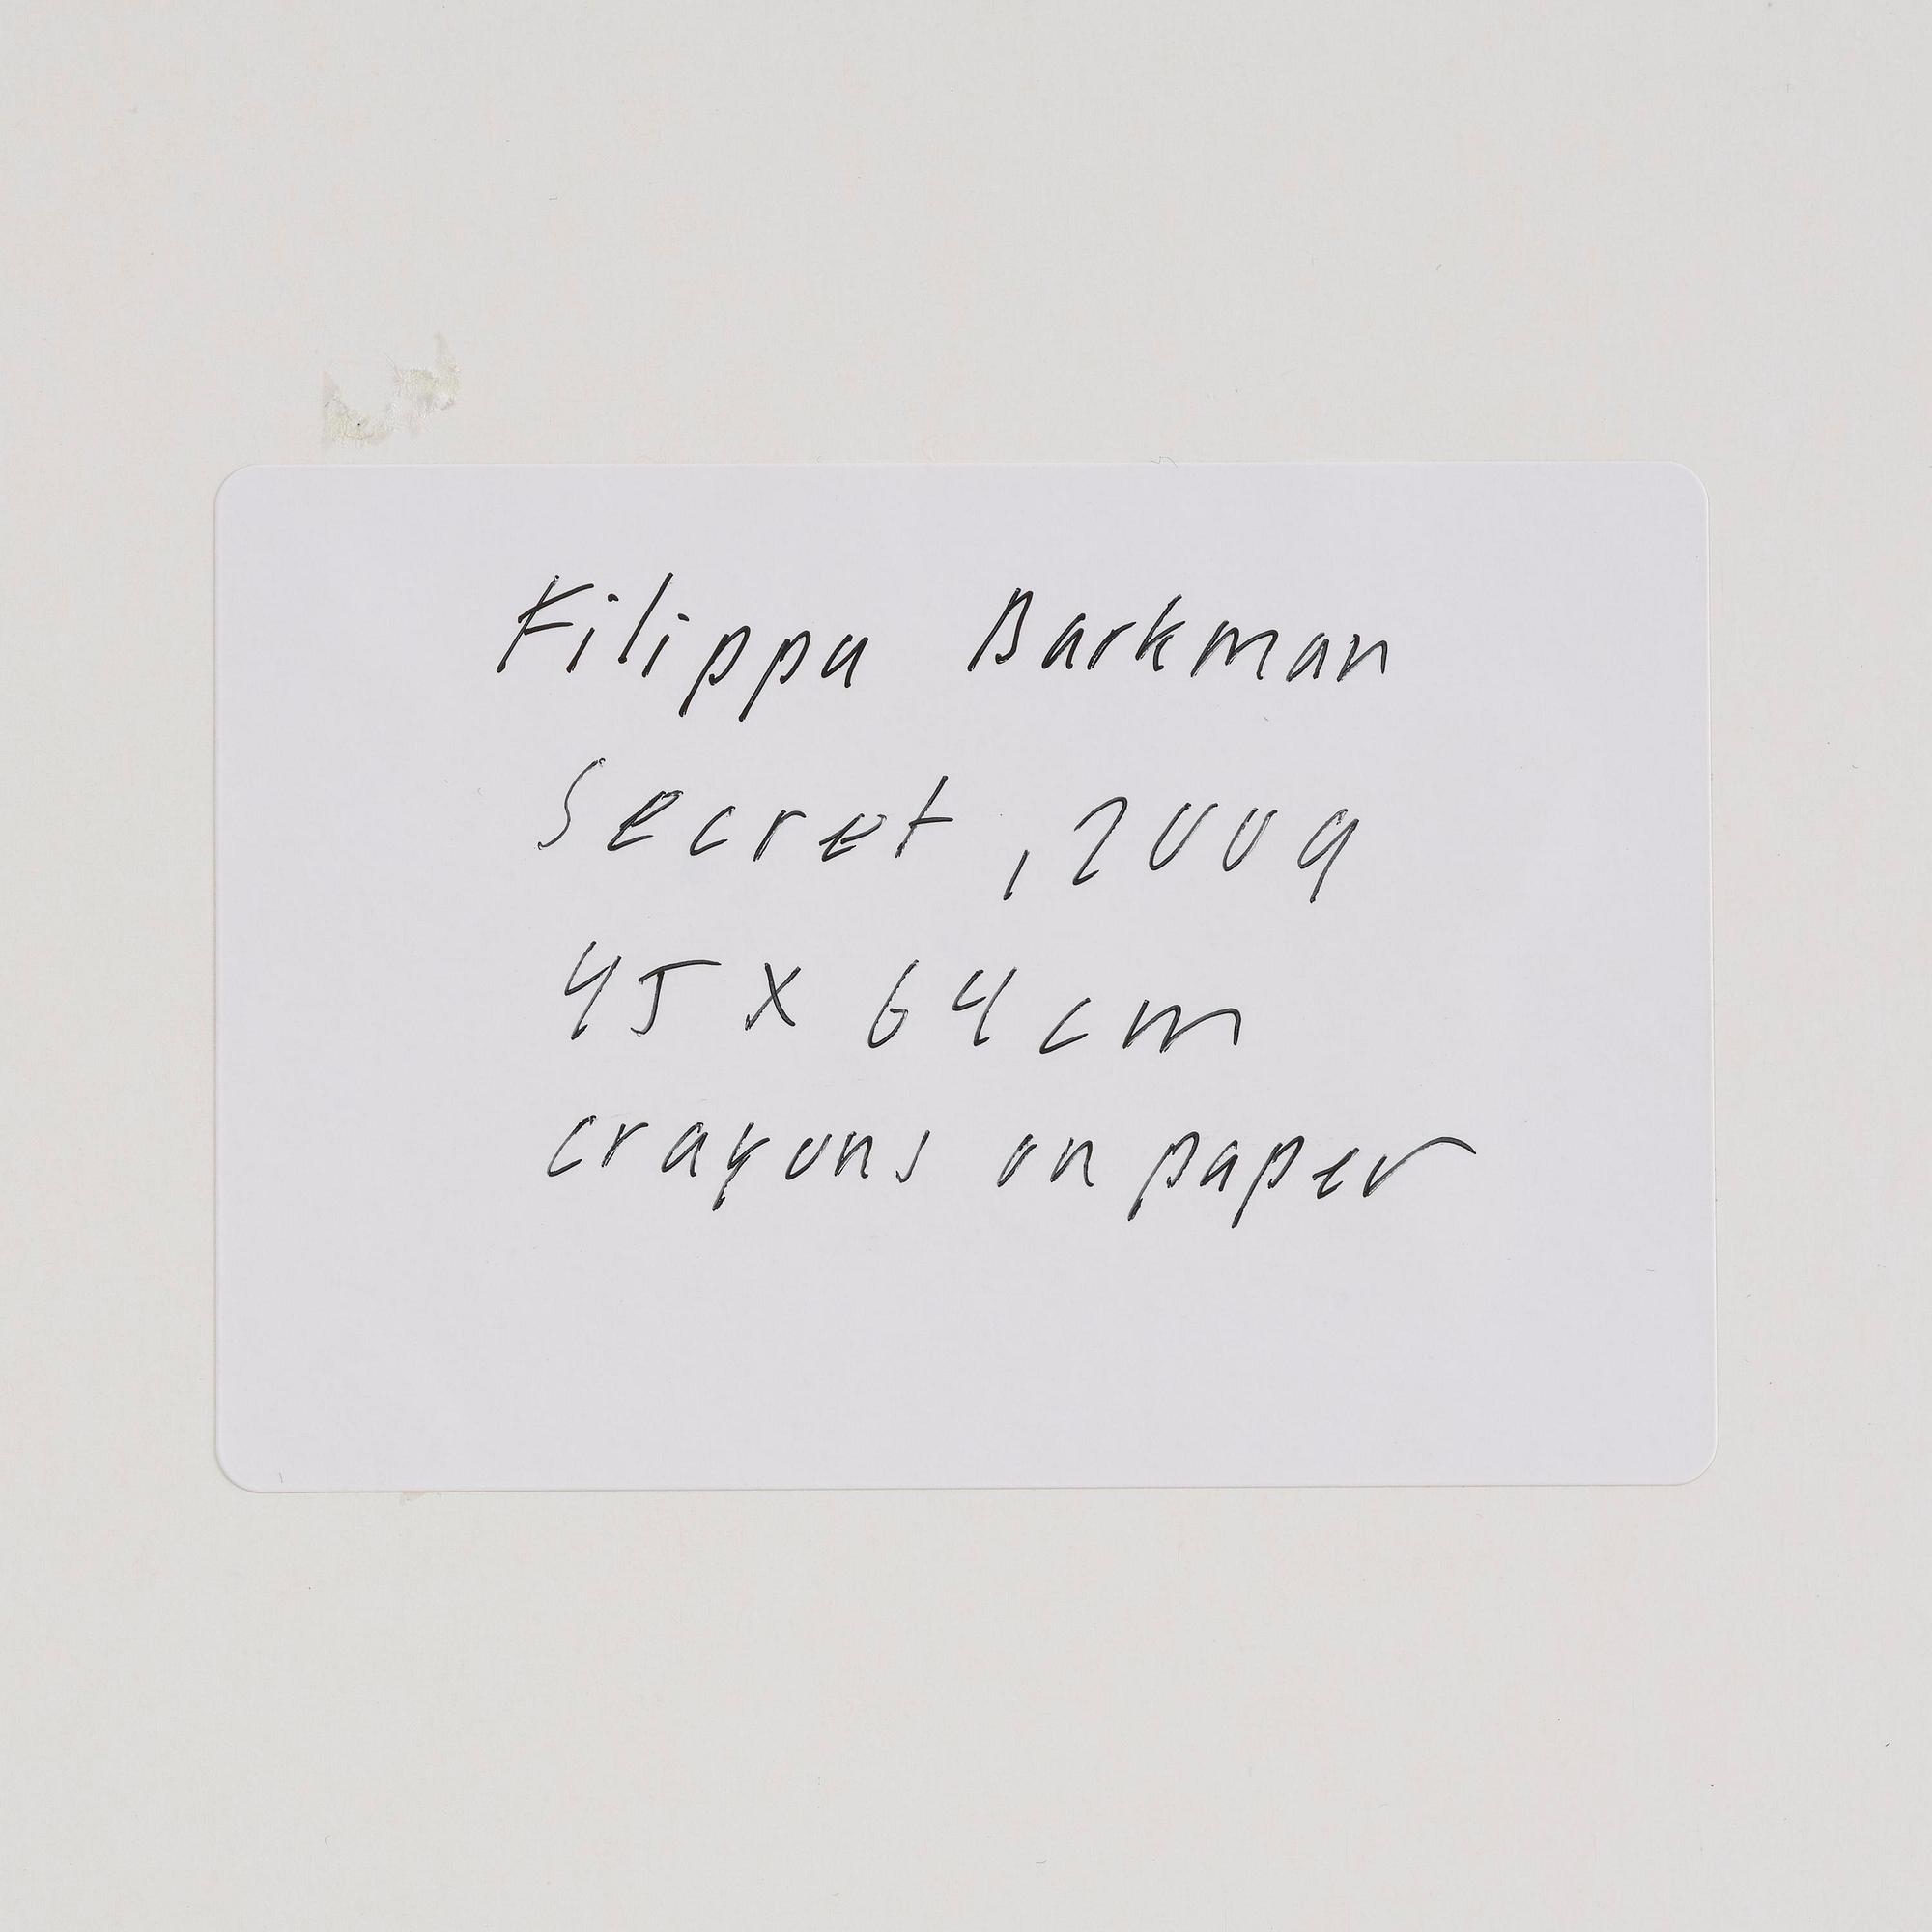 Filippa Barkman
Secret, 2009
45 x 64 cm
crayons on paper